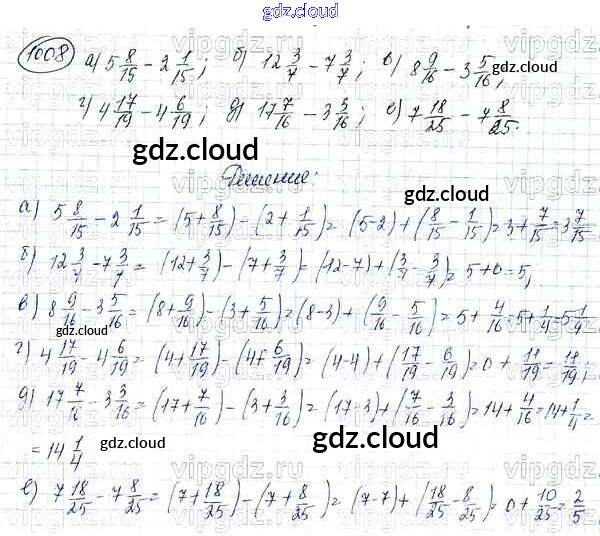 gdz.cloud
1008 а) 5 8/15 − 2 1/15; б) 12 3/7 − 7 3/7; в) 8 9/16 − 3 5/16;
г) 4 17/19 − 4 6/19; д) 17 7/16 − 3 3/16; е) 7 18/25 − 7 8/25.
gdz.cloud
gdz.cloud
Решение:
gdz.cloud
а) 5 8/15 − 2 1/15 = (5 + 8/15) − (2 + 1/15) = (5−2) + (8/15 − 1/15) = 3 + 7/15 = 3 7/15
б) 12 3/7 − 7 3/7 = (12 + 3/7) − (7 + 3/7) = (12−7) + (3/7 − 3/7) = 5 + 0 = 5;
в) 8 9/16 − 3 5/16 = (8 + 9/16) − (3 + 5/16) = (8−3) + (9/16 − 5/16) = 5 + 4/16 = 5 + 1/4 = 5 1/4
gdz.cloud
gdz.cloud
г) 4 17/19 − 4 6/19 = (4 + 17/19) − (4 + 6/19) = (4−4) + (17/19 − 6/19) = 0 + 11/19 = 11/19;
д) 17 7/16 − 3 3/16 = (17 + 7/16) − (3 + 3/16) = (17−3) + (7/16 − 3/16) = 14 + 4/16 = 14 + 1/4 =
= 14 1/4
gdz.cloud
gdz.cloud
gdz.cloud
е) 7 18/25 − 7 8/25 = (7 + 18/25) − (7 + 8/25) = (7−7) + (18/25 − 8/25) = 0 + 10/25 = 2/5